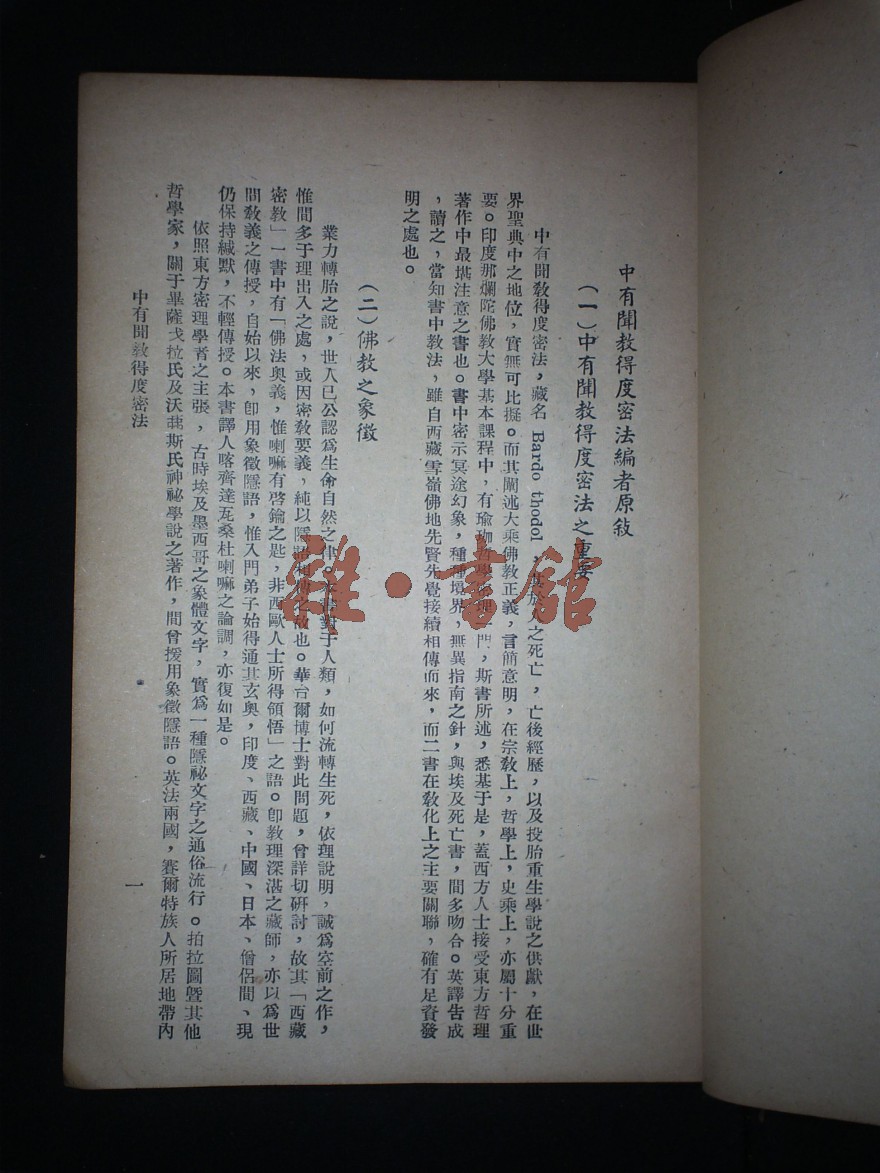 中有聞教得度密法編者原敍
（一）中有聞教得度密法之重要
中有聞敎得度密法，藏名 Bardo thodol，其於人之死亡，亡後經歷，以及投胎重生學說之供獻，在世
界聖典中之地位，實無可比擬。而其闡述大乘佛教正義，言簡意明，在宗敎上，哲學上，史乘上，亦屬十分重
要。印度那爛陀佛敎大學基本課程中，有瑜珈哲學心理門，斯書所述，悉基于是，蓋西方人士接受東方哲理
著作中最堪注意之書也。書中密示冥途幻象，種種境界，無異指南之針，與埃及死亡書，間多吻合。英譯告成
，讀之，當知書中敎法，雖自西藏雪嶺佛地先賢先覺接續相傳而來，而二書在敎化上之主要關聯，確有足資發
明之處也。
（二）佛教之象徵
業力轉胎之說，世人已公認爲生命自然之律。本書對于人類，如何流轉生死，依理說明，誠爲空前之作，
惟間多于理出入之處，或因密敎要義，純以隱語相傳之故也。華台爾博士對此問題，曾詳切硏討，故其「西藏
密敎」一書中有「佛法奧義，惟喇嘛有啓鑰之匙，非西歐人士所得領悟」之語。卽敎理深湛之藏師，亦以爲世
間敎義之傳授，自始以來，卽用象徵隱語，惟入門弟子始得通其玄奧，印度、西藏、中國、日本、僧侶間、現
仍保持緘默，不輕傳授。本書譯人喀齊達瓦桑杜喇嘛之論調，亦復如是。
依照東方密理學者之主張，古時埃及墨西哥之象體文字，實爲一種隱祕文字之通俗流行。拍拉圖曁其他
哲學家，關于畢薩戈拉氏及沃菲斯氏神祕學說之著作，間曾援用象徵隱語。英法兩國，賽爾特族人所居地帶內
中有聞敎得度密法
一
雜·書館